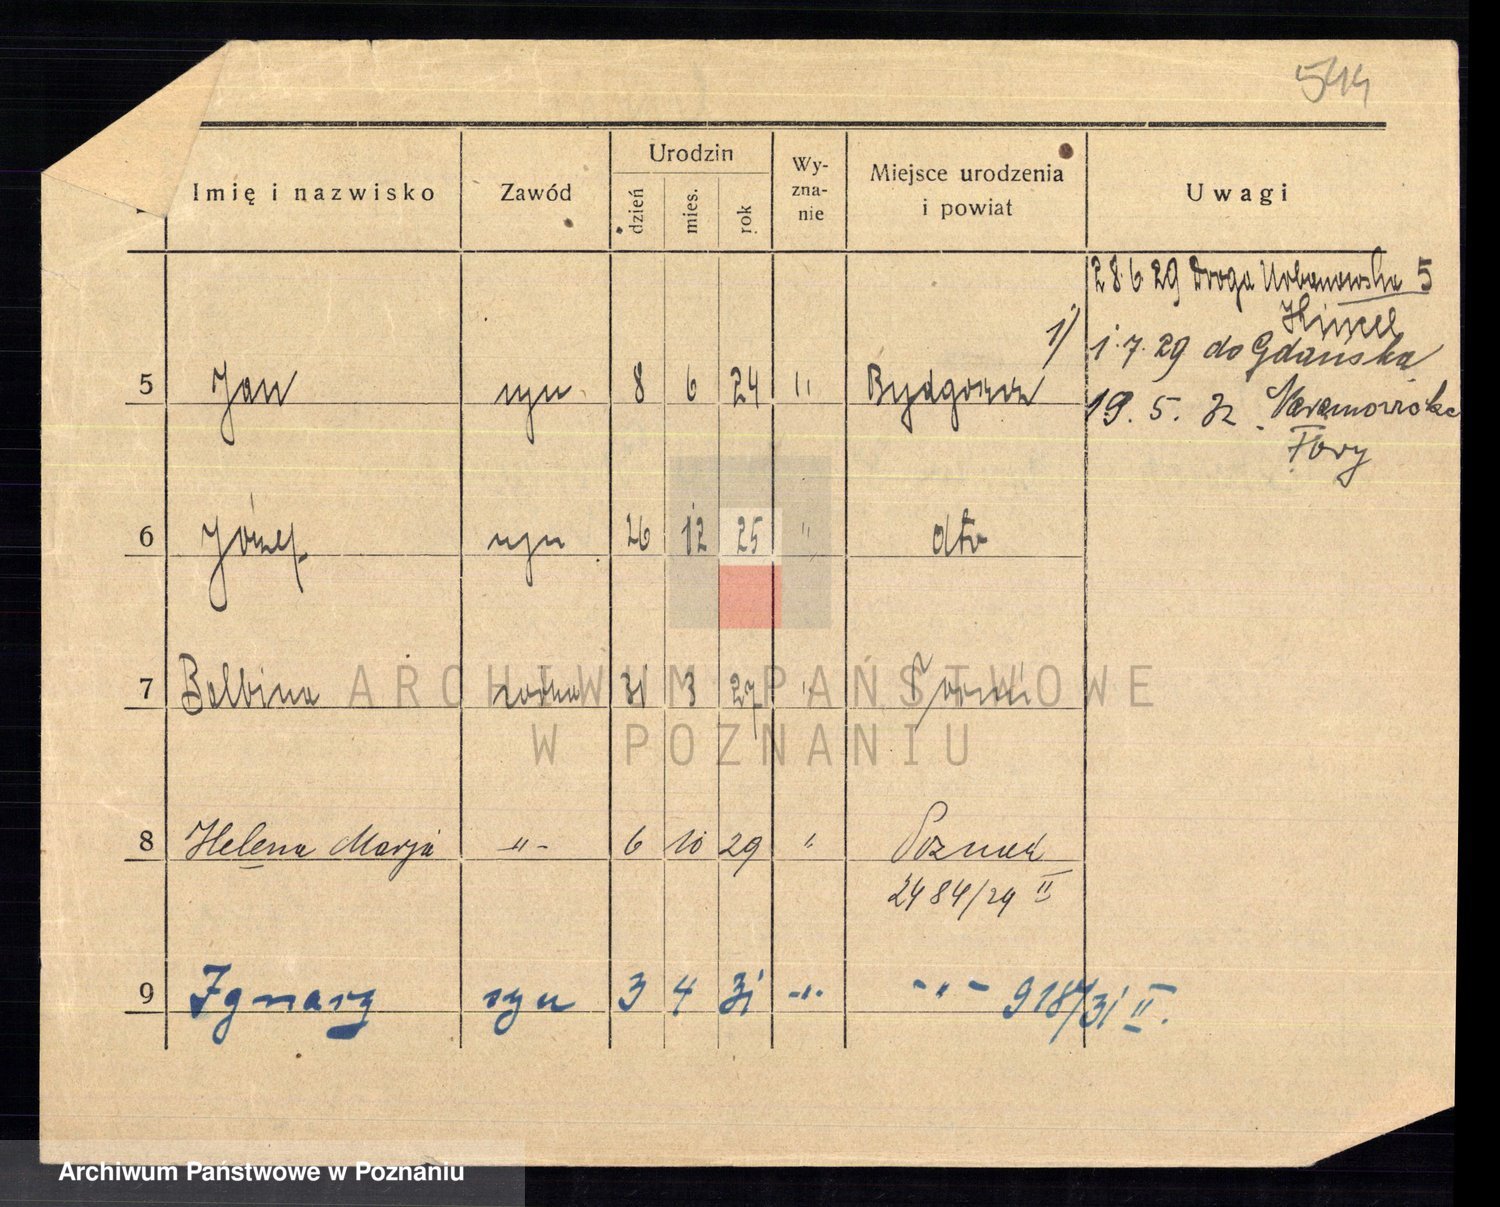 544
Imię i nazwisko Zawód Urodzin dzień mies. rok Wy-zna-nie Miejsce urodzenia i powiat Uwagi
28 6 29 Droga Urbanowska 5
1) 1.7.29 do Gdańska
5 Jan syn 8 6 24 " Bydgoszcz
19. 5. 32
6 Józef syn 26 12 25 " dto
7 Balbina córka 31 3 27 " Toruń
ARCHIWUM PAŃSTWOWE
W POZNANIU
8 Helena Marja -"- 6 10 29 " Poznań
2484/29 II
9 Ignacy syn 3 4 31 -"- -"- 918/31 II.
Archiwum Państwowe w Poznaniu